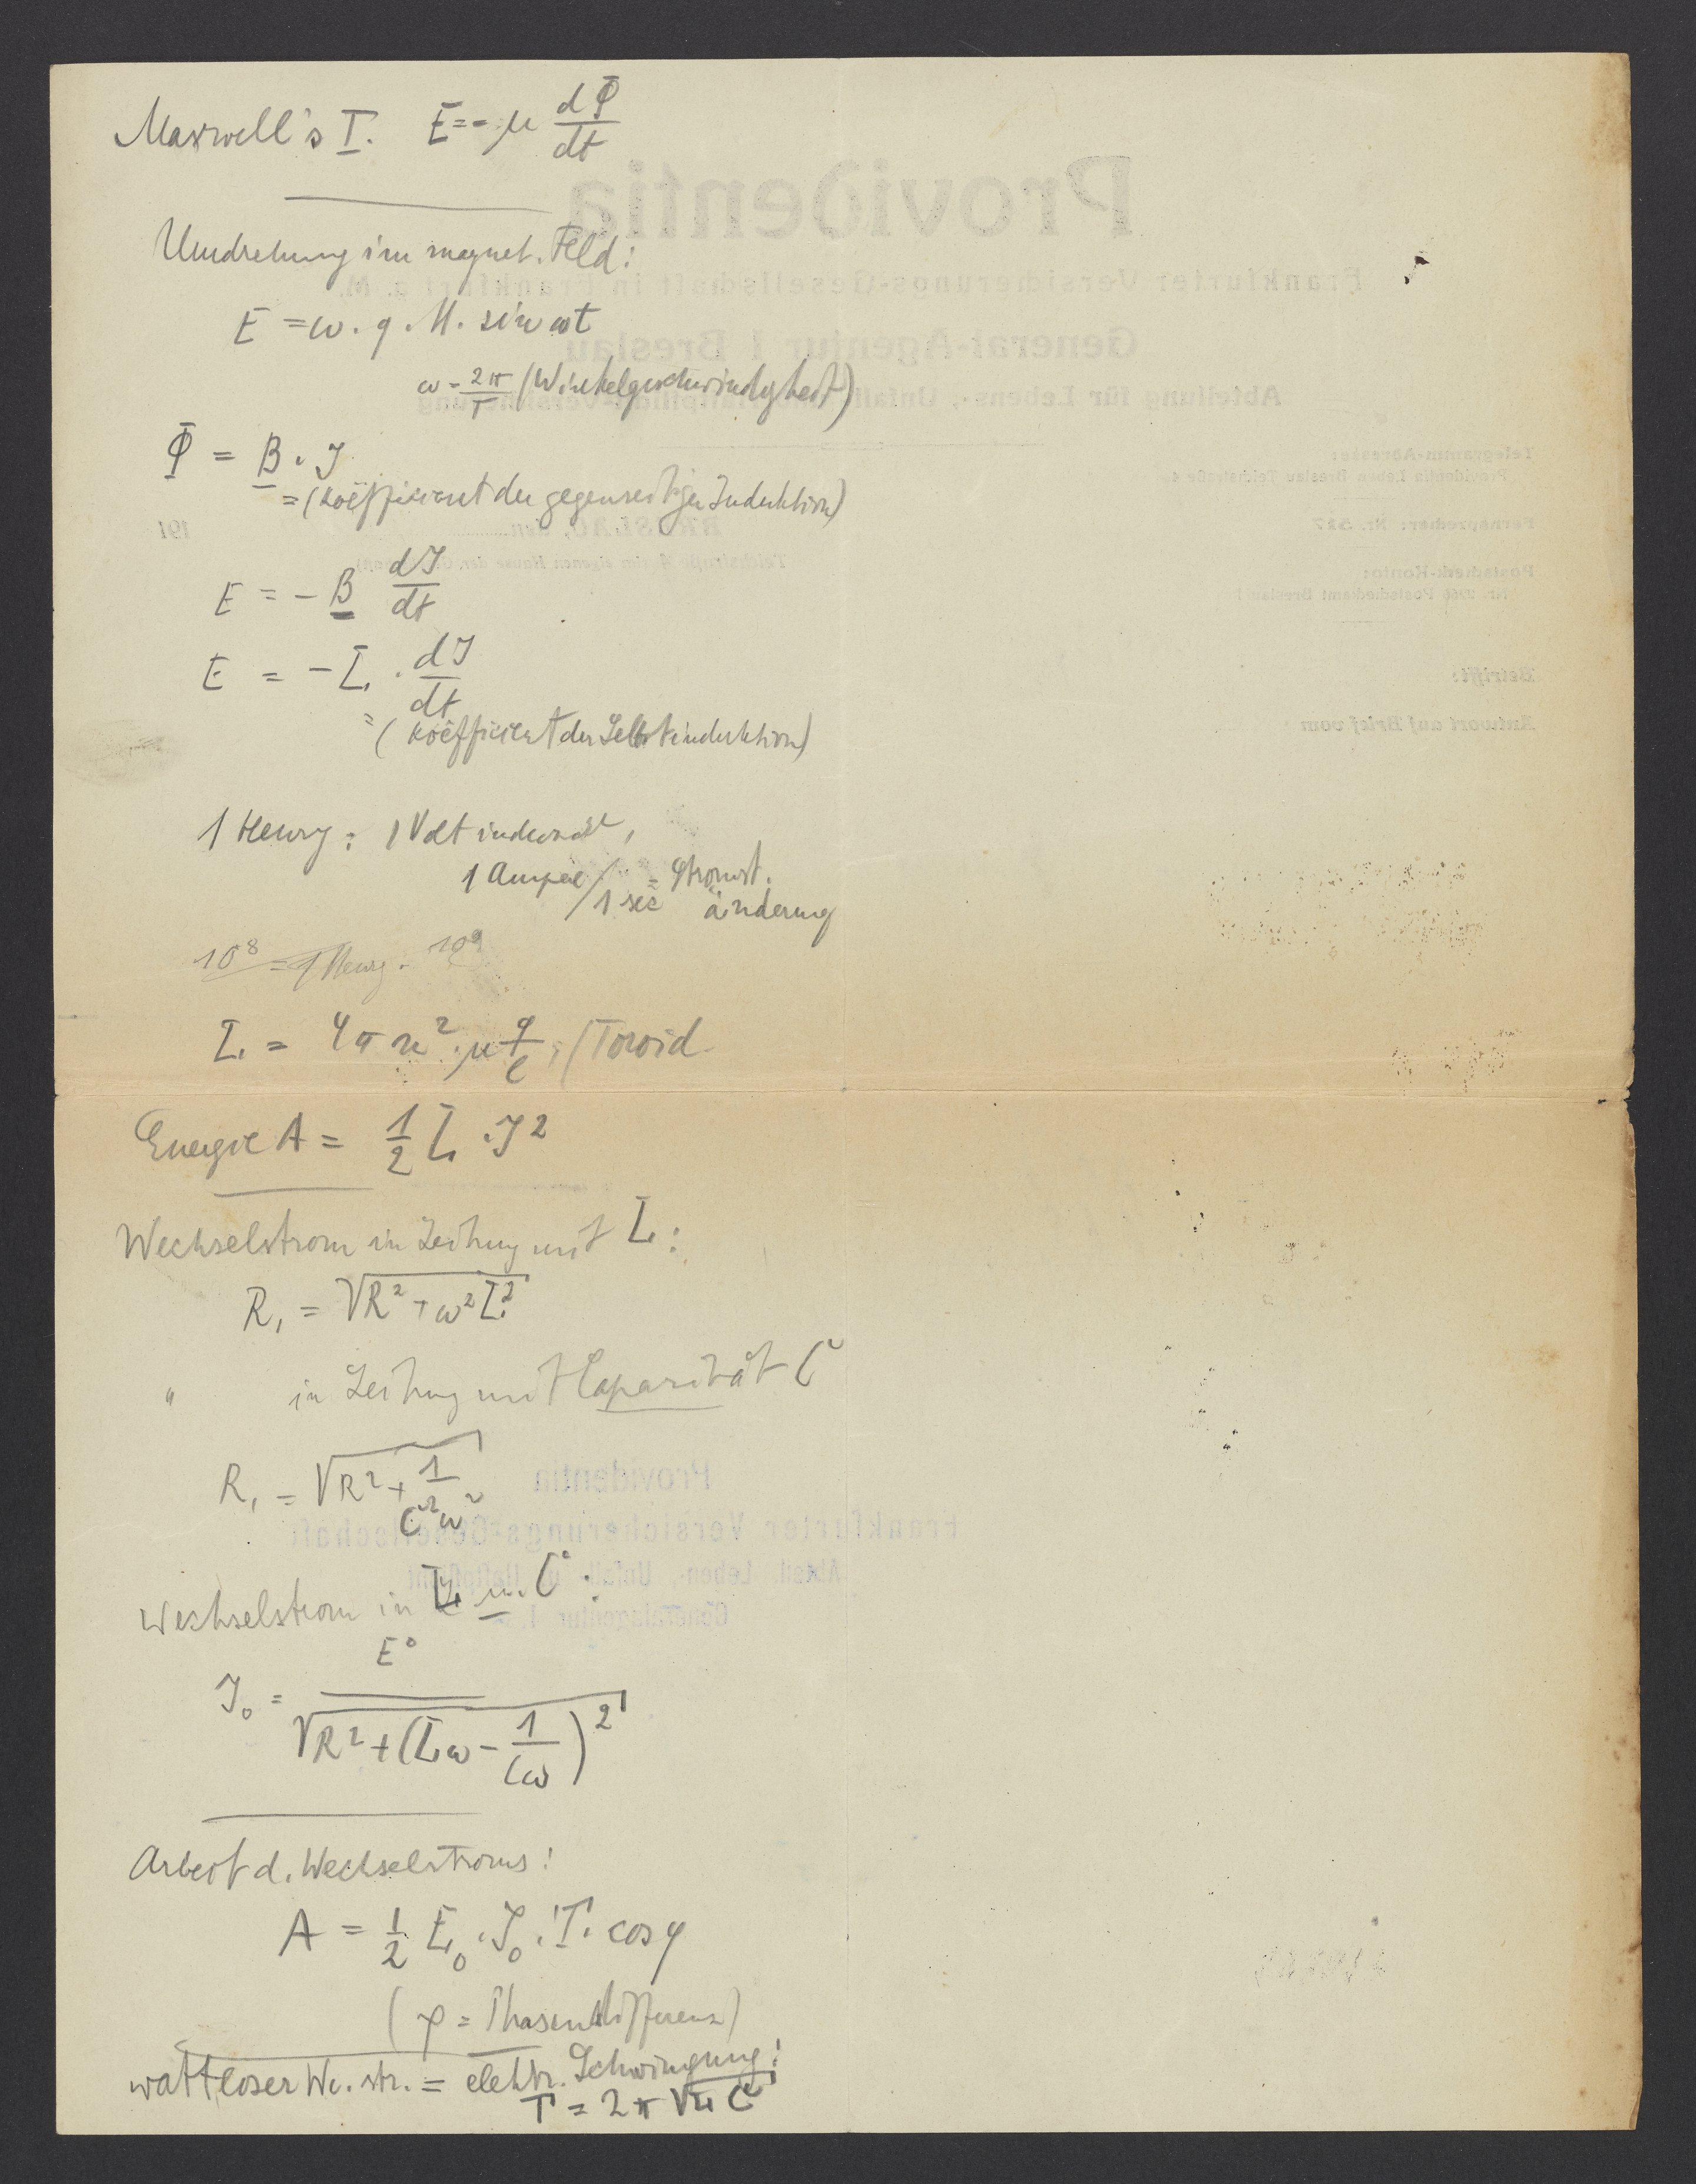 Maxwell's I. E = - μ dΦ/dt
Umdrehung im magnet. Feld:
E = ω . q . M . sin ωt
ω = 2π/T (Winkelgeschwindigkeit)
Φ = B . J
= (Koëffizient der gegenseitigen Induktion)
E = - B dJ/dt
E = - L . dJ/dt
= (Koëffizient der Selbstinduktion)
1 Henry: 1 Volt induziert,
1 Ampère/1 sec = Stromst.
änderung
10⁸ = 1 Henry . 10⁹
L = 4πn² . μ q/l ; (Toroid
Energie A = 1/2 L . J²
Wechselstrom in Leitung mit L:
R₁ = √(R² + ω²L²)
" in Leitung mit Capazität C
R₁ = √(R² + 1/(C²ω²))
Wechselstrom in L u. C:
J₀ = E₀/√(R² + (Lω - 1/(Cω))²)
Arbeit d. Wechselstroms:
A = 1/2 E₀ . J₀ . T . cos φ
(φ = Phasendifferenz)
wattloser We.str. = elektr. Schwingung:
T = 2π √LC
Providentia
Frankfurter Versicherungs-Gesellschaft in Frankfurt a. M.
General-Agentur I Breslau
Abteilung für Lebens-, Unfall- Haftpflicht-Versicherung
Telegramm-Adresse:
Providentia Leben Breslau Teichstraße 4
Fernsprecher: Nr. 527
BRESLAU, den 191
Postscheck-Konto:
Postscheckamt Breslau
Betrifft:
Antwort auf Brief vom
Providentia
Frankfurter Versicherungs-Gesellschaft